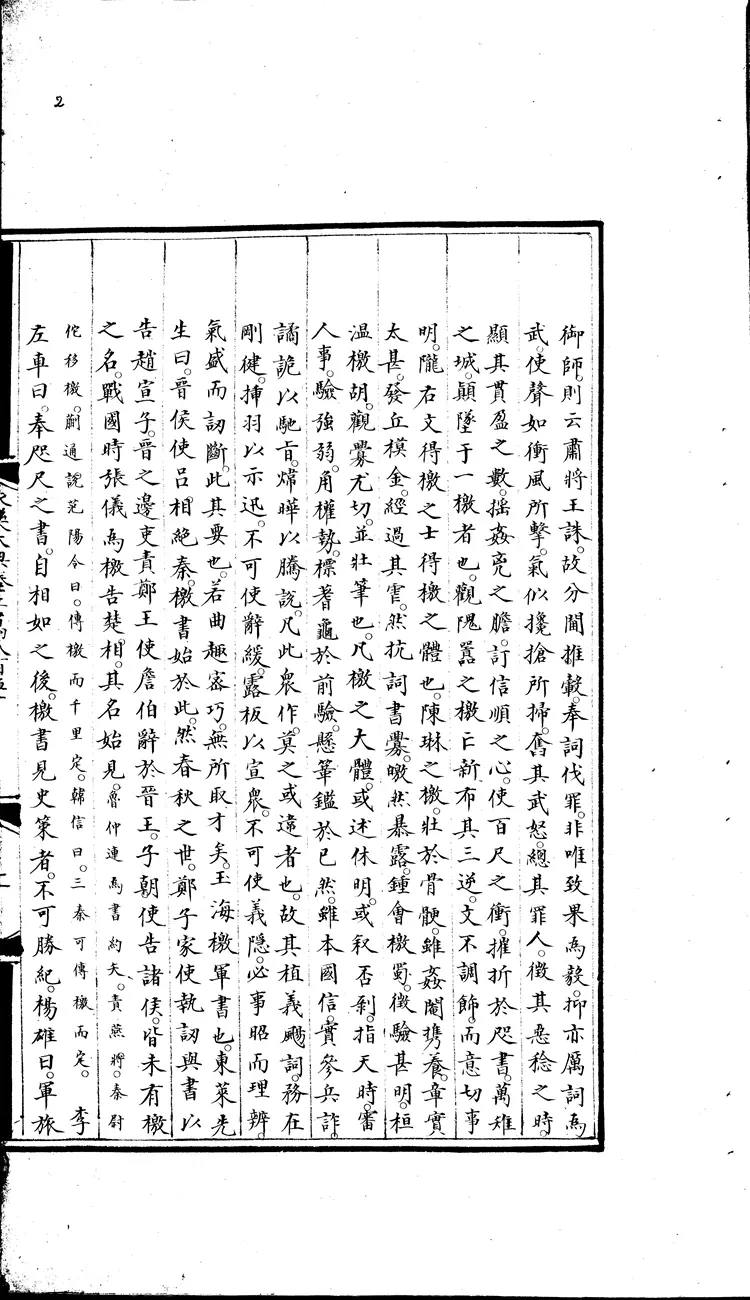 2
御師。則云肅將王誅。故分閫推轂。奉詞伐罪。非唯致果為毅。抑亦厲詞為
武。使聲如衝風所擊。氣似攙搶所掃。奮其武怒。總其罪人。徵其惡稔之時。
顯其貫盈之數。搖姦宄之膽。訂信順之心。使百尺之衝。摧折於咫書。萬雉
之城。顛墜于一檄者也。觀隗囂之檄亡新。布其三逆。文不調飾。而意切事
明。隴右文得檄之士得檄之體也。陳琳之檄。壯於骨骾。雖姦閹攜養。章實
太甚。發丘模金。經過其雪。然抗詞書釁。皦然暴露。鍾會檄蜀。徵驗甚明。桓
溫檄胡。觀釁尤切。並壯筆也。凡檄之大體。或述休明。或叙否剥。指天時。審
人事。驗強弱。角權勢。標蓍龜於前驗。懸鞶鑑於已然。雖本國信。實參兵詐。
譎詭以馳旨。煒曄以騰說。凡此衆作。莫之或違者也。故其植義颺詞。務在
剛健。揷羽以示迅。不可使辭緩。露板以宣衆。不可使義隱。必事昭而理辨。
氣盛而詞斷。此其要也。若曲趣密巧。無所取才矣。玉海檄軍書也。東萊先
生曰。晉侯使吕相絶秦。檄書始於此。然春秋之世。鄭子家使執訊與書以
告趙宣子。晉之邊吏責鄭王使詹伯辭於晉王。子朝使告諸侯。皆未有檄
之名。戰國時張儀為檄告楚相。其名始見。魯仲連為書約矢。責燕將。秦尉
佗移檄。蒯通說范陽令曰。傳檄而千里定。韓信曰。三秦可傳檄而定。李
左車曰。奉咫尺之書。自相如之後。檄書見史策者。不可勝紀。楊雄曰。軍旅